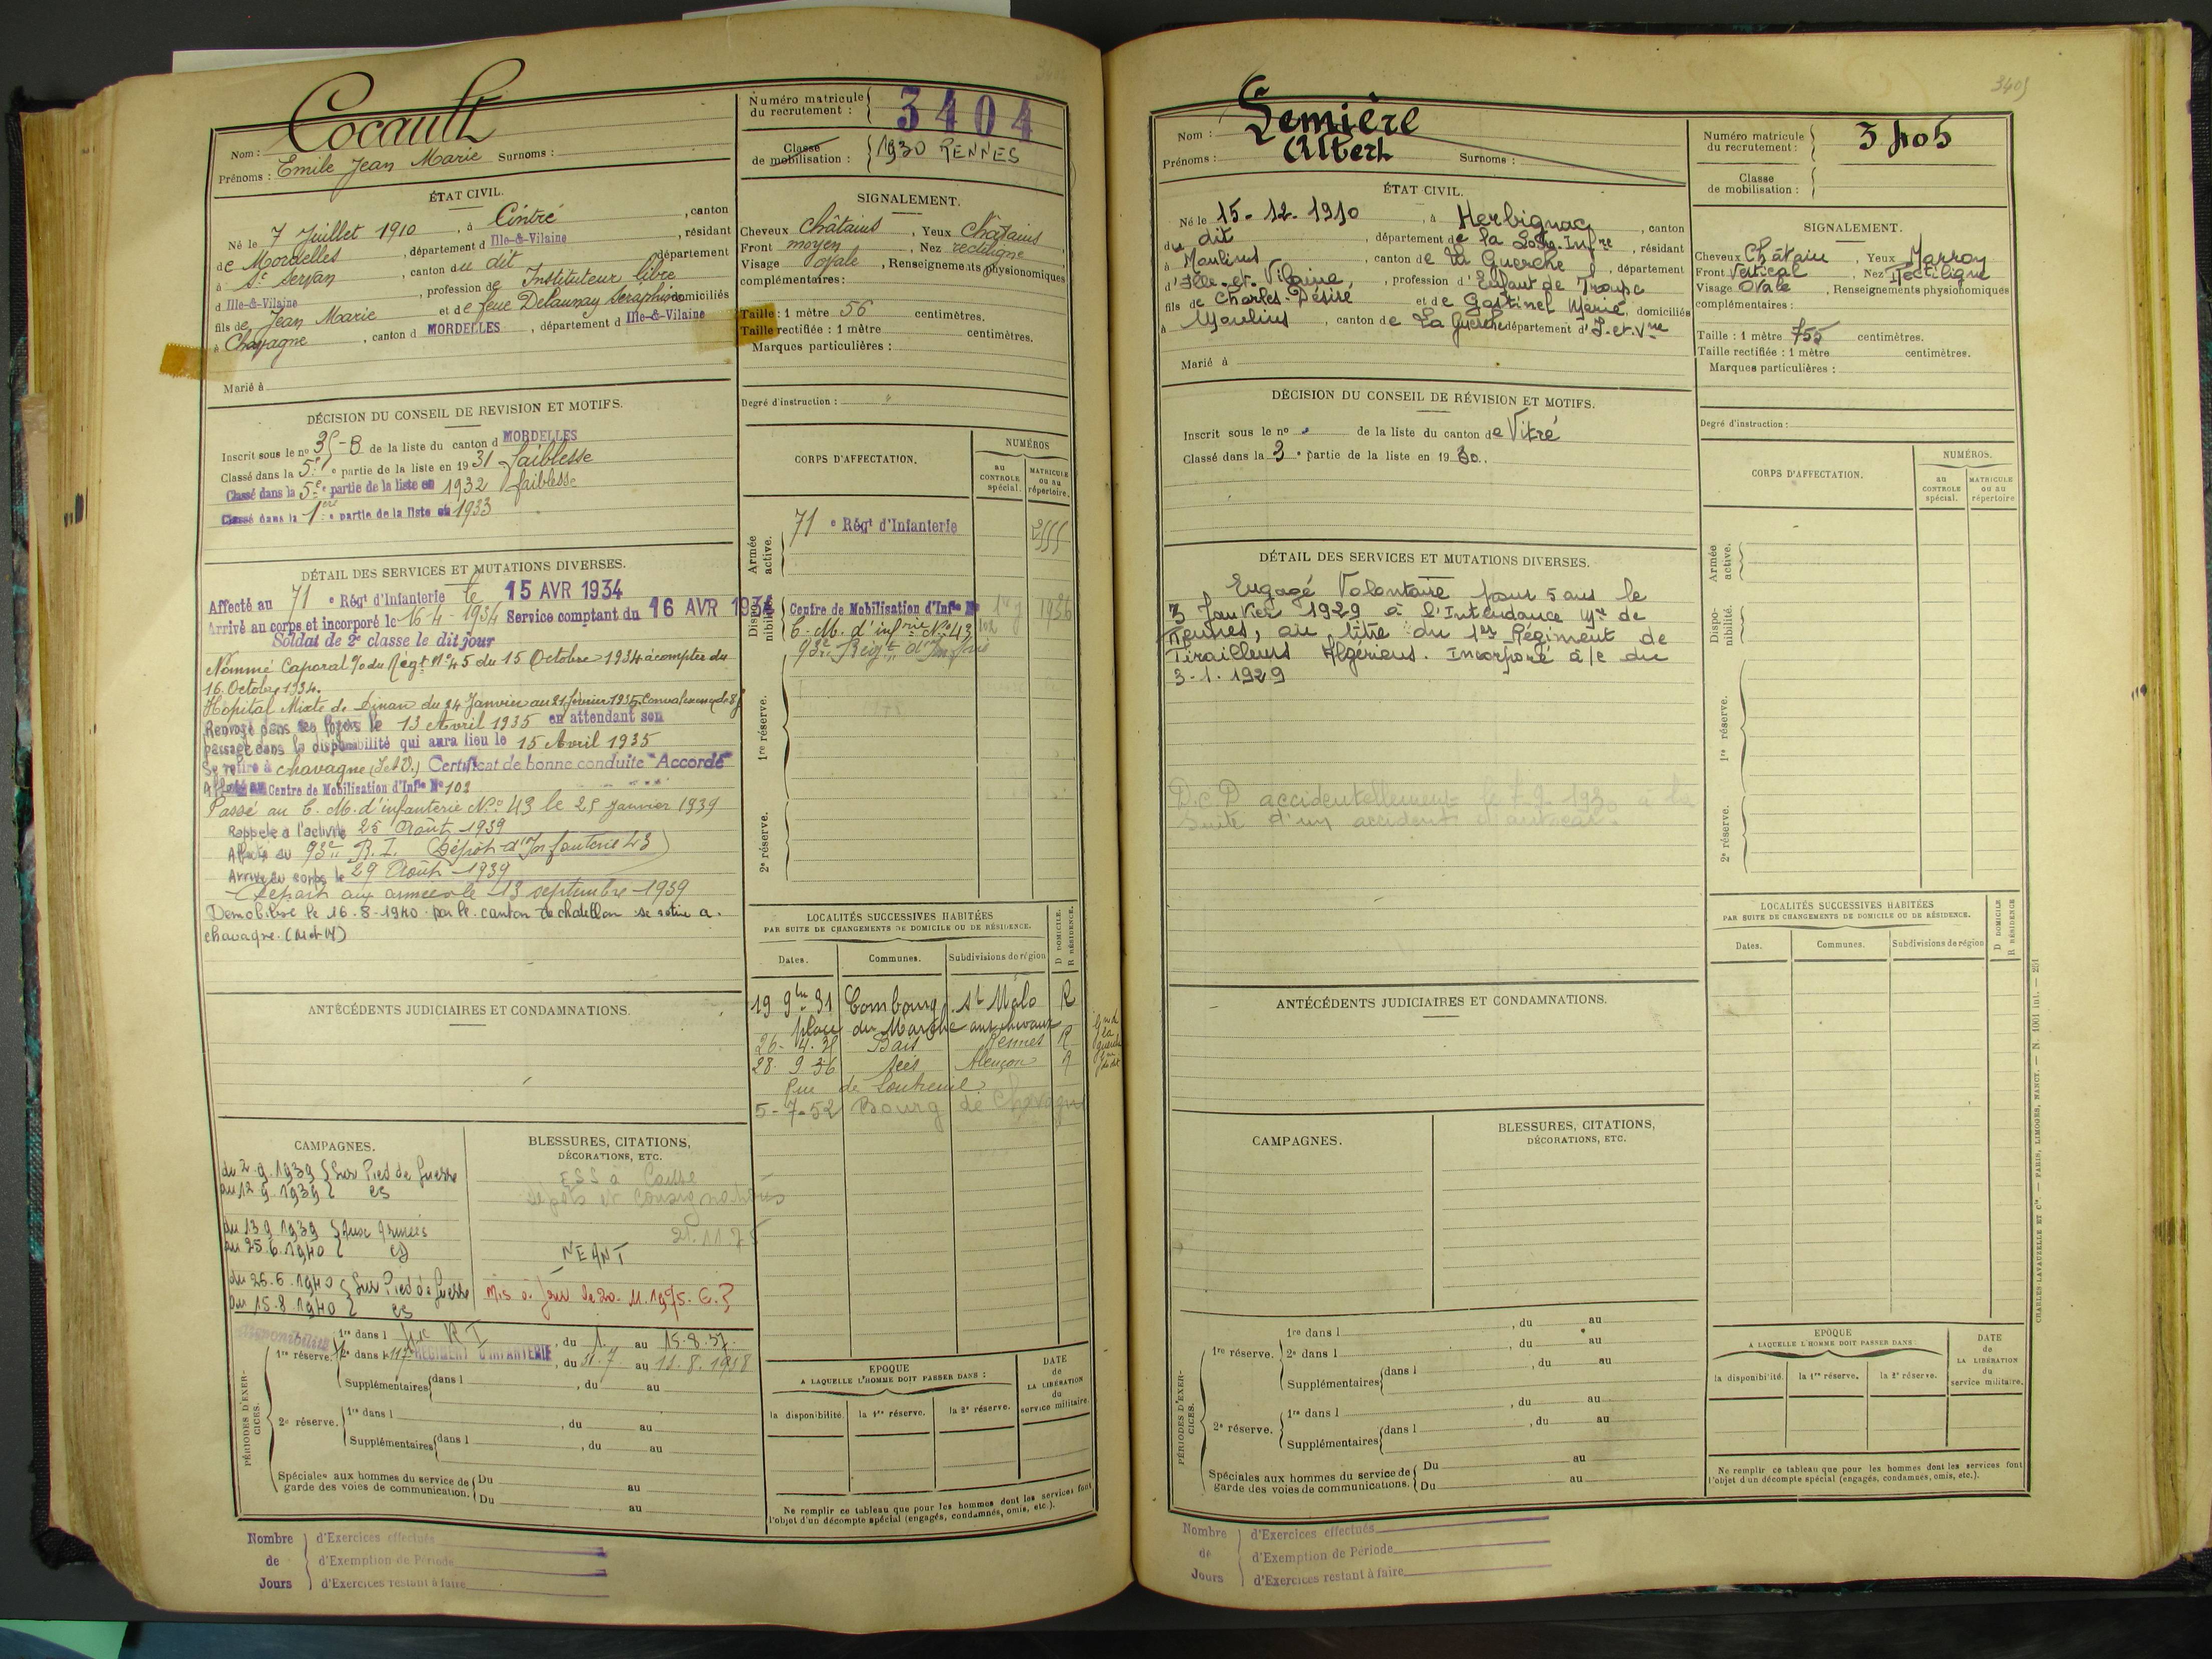 Nom : Cocault
Prénoms : Emile Jean Marie Surnoms :
Numéro matricule du recrutement : 3404
Classe de mobilisation : 1930 RENNES
ÉTAT CIVIL.
Né le 7 Juillet 1910, à Cintré, canton
de Mordelles, département d Ille-&-Vilaine, résidant
à St Servan, canton du dit, département
d Ille-&-Vilaine, profession de Instituteur libre
fils de Jean Marie et de feue Delaunay Seraphine domiciliés
à Chavagne, canton d MORDELLES, département d Ille-&-Vilaine
Marié à
SIGNALEMENT.
Cheveux Châtains, Yeux Châtains,
Front moyen, Nez rectiligne,
Visage ovale, Renseignements physionomiques
complémentaires :
Taille : 1 mètre 56 centimètres.
Taille rectifiée : 1 mètre centimètres.
Marques particulières :
Degré d'instruction : "
DÉCISION DU CONSEIL DE REVISION ET MOTIFS.
Inscrit sous le no 35-B de la liste du canton d MORDELLES
Classé dans la 5e partie de la liste en 1931 faiblesse
Classé dans la 5e partie de la liste en 1932 faiblesse
Classé dans la 1ère partie de la liste en 1933
CORPS D'AFFECTATION.
NUMÉROS
au CONTROLE spécial.
MATRICULE ou au répertoire.
Armée active.
71 e Régt d'Infanterie
Disponibilité.
Centre de Mobilisation d'Infie No 102 1936
C. M. d'infrie No 43
93e Régt d'Infrie
1re réserve.
2e réserve.
DÉTAIL DES SERVICES ET MUTATIONS DIVERSES.
Affecté au 71 e Régt d'Infanterie le 15 AVR 1934
Arrivé au corps et incorporé le 16-4-1934 Service comptant du 16 AVR 1934
Soldat de 2e classe le dit jour
Nommé Caporal %du Régt No 45 du 15 Octobre 1934 à compter du
16 Octobre 1934.
Hôpital Mixte de Dinan du 24 Janvier au 21 février 1935. Convalescence de 8j
Renvoyé dans ses foyers le 13 Avril 1935 en attendant son
passage dans la disponibilité qui aura lieu le 15 Avril 1935
Se retire à Chavagne (I et V.) Certificat de bonne conduite "Accordé"
Affecté au Centre de Mobilisation d'Infie No 102
Passé au C. M. d'infanterie No 43 le 25 Janvier 1939
Rappelé à l'activité 25 Août 1939
Affecté au 93e R.I. (Dépôt d'Infanterie 43)
Arrivé au corps le 29 Août 1939
Départ aux armées le 13 septembre 1939
Démobilisé le 16-8-1940 par le canton de chatillon se retire à
chavagne. (I et V)
ANTÉCÉDENTS JUDICIAIRES ET CONDAMNATIONS.
LOCALITÉS SUCCESSIVES HABITÉES
PAR SUITE DE CHANGEMENTS DE DOMICILE OU DE RÉSIDENCE.
D DOMICILE. R RÉSIDENCE.
Dates. Communes. Subdivisions de région
19 9bre 31 Combourg St Malo R
place du Marché aux chevaux
26-4-35 Bais Rennes R
28-9-36 Sées Alençon R
Rue de
5-7-52 Bourg de Chavagne
CAMPAGNES.
du 2.9.1939 } Sur Pied de Guerre
au 12.9.1939 } CS
du 13.9.1939 } Aux Armées
au 25.6.1940 } CD
du 26.6.1940 } Sur Pied de Guerre
au 15.8.1940 } CS
BLESSURES, CITATIONS, DÉCORATIONS, ETC.
ESS à Caisse
dépôts et Consignations
21.11.75
NEANT
Mis à jour le 20.11.1975.
PÉRIODES D'EXERCICES.
Disponibilité
1re réserve.
1re dans l R I, du 1. au 15.8.37.
2e dans l 117e RÉGIMENT D'INFANTERIE, du 31.7 au 11.8.1938
Supplémentaires dans l , du au
2e réserve.
1re dans l , du au
Supplémentaires dans l , du au
Spéciales aux hommes du service de garde des voies de communication.
Du au
Du au
EPOQUE
A LAQUELLE L'HOMME DOIT PASSER DANS :
la disponibilité. la 1re réserve. la 2e réserve.
DATE de LA LIBÉRATION du service militaire.
Ne remplir ce tableau que pour les hommes dont les services font
l'objet d'un décompte spécial (engagés, condamnés, omis, etc.).
Nombre de Jours
d'Exercices effectués
d'Exemption de Période
d'Exercices restant à faire
3405
Nom : Lemière
Prénoms : Albert Surnoms :
Numéro matricule du recrutement : 3405
Classe de mobilisation :
ÉTAT CIVIL.
Né le 15-12-1910, à Herbignac, canton
du dit, département de la Loire-Infre, résidant
à Moulins, canton de la Guerche, département
d'Ille-et-Vilaine, profession d'Enfant de Troupe
fils de Charles Désiré et de Gastinel Marie, domiciliés
à Moulins, canton de La Guerche département d'I.et.Vne
Marié à
SIGNALEMENT.
Cheveux Châtain, Yeux Marron
Front Vertical, Nez Rectiligne
Visage Ovale, Renseignements physionomiques
complémentaires :
Taille : 1 mètre 755 centimètres.
Taille rectifiée : 1 mètre centimètres.
Marques particulières :
Degré d'instruction :
DÉCISION DU CONSEIL DE RÉVISION ET MOTIFS.
Inscrit sous le no de la liste du canton de Vitré
Classé dans la 3e partie de la liste en 1930.
CORPS D'AFFECTATION.
NUMÉROS.
au CONTROLE spécial.
MATRICULE ou au répertoire
Armée active.
Disponibilité.
1re réserve.
2e réserve.
DÉTAIL DES SERVICES ET MUTATIONS DIVERSES.
Engagé Volontaire pour 5 ans le
3 Janvier 1929 à l'Intendance Mre de
Rennes, au titre du 1er Régiment de
Tirailleurs Algériens. Incorporé à/c du
3-1-1929
D.C.D accidentellement le 7-9-1930 à la
suite d'un accident d'autocar.
ANTÉCÉDENTS JUDICIAIRES ET CONDAMNATIONS.
LOCALITÉS SUCCESSIVES HABITÉES
PAR SUITE DE CHANGEMENTS DE DOMICILE OU DE RÉSIDENCE.
D DOMICILE R RÉSIDENCE
Dates. Communes. Subdivisions de région
CAMPAGNES.
BLESSURES, CITATIONS, DÉCORATIONS, ETC.
PÉRIODES D'EXERCICES.
1re réserve.
1re dans l , du au
2e dans l , du au
Supplémentaires dans l , du au
2e réserve.
1re dans l , du au
Supplémentaires dans l , du au
Spéciales aux hommes du service de garde des voies de communications.
Du au
Du au
EPOQUE
A LAQUELLE L'HOMME DOIT PASSER DANS :
la disponibilité. la 1re réserve. la 2e réserve.
DATE de LA LIBÉRATION du service militaire.
Ne remplir ce tableau que pour les hommes dont les services font
l'objet d'un décompte spécial (engagés, condamnés, omis, etc.).
Nombre de Jours
d'Exercices effectués
d'Exemption de Période
d'Exercices restant à faire
CHARLES-LAVAUZELLE ET Cie. — PARIS, LIMOGES, NANCY. — N. 1001 int. — 291